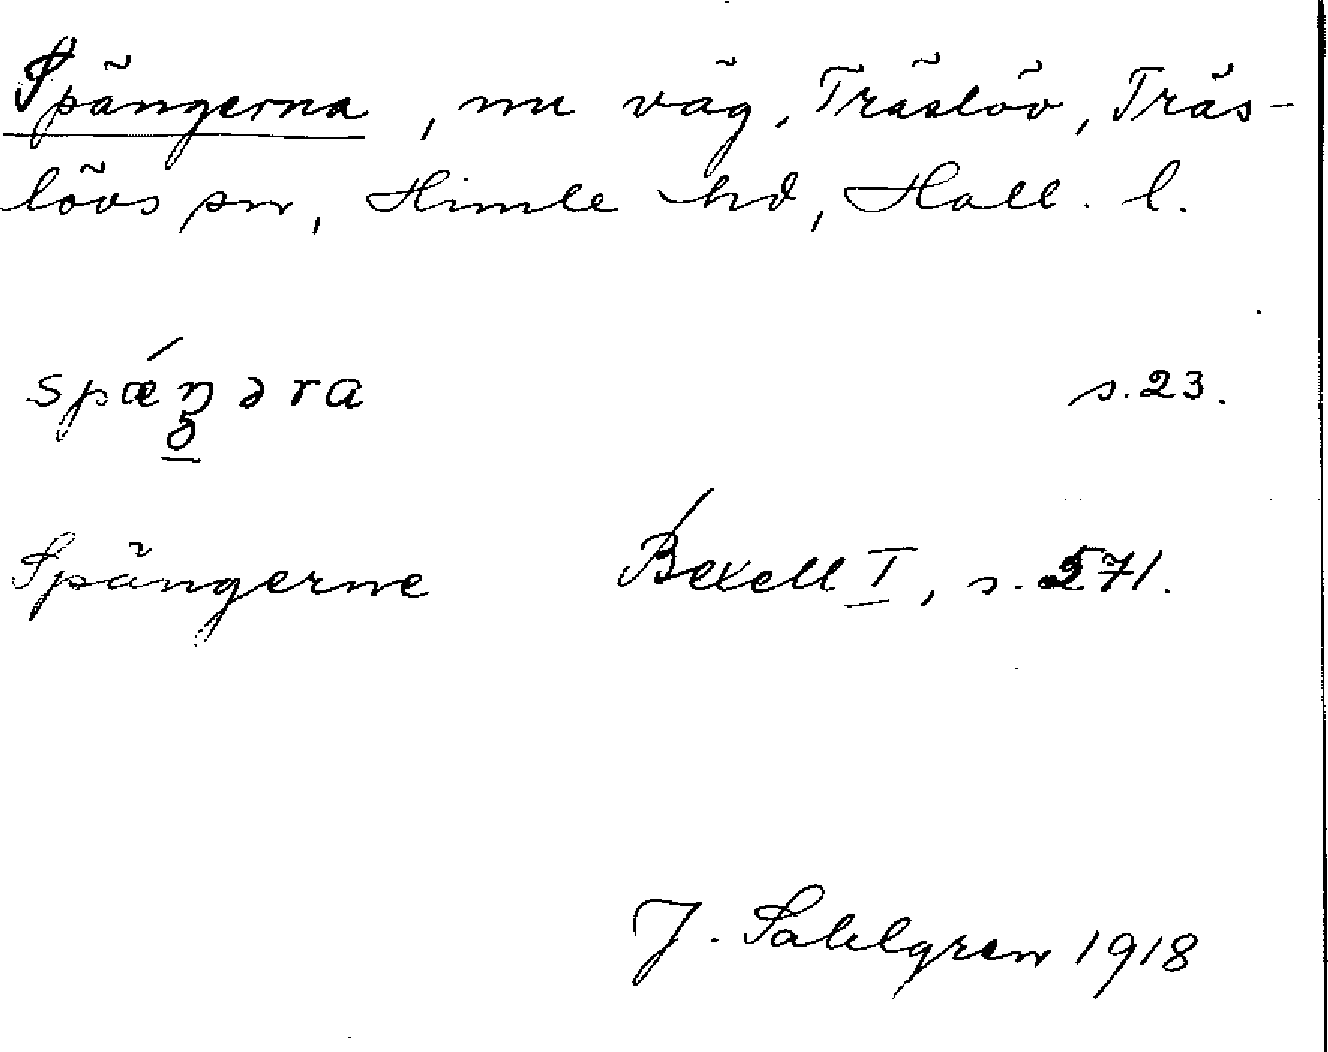 Spängerna, nu väg, Träslöv, Träs-
lövs sn, Himle hd, Hall. l.
spǽŋəra s.23.
Spängerne Bexell I, s. 571.
J. Sahlgren 1918